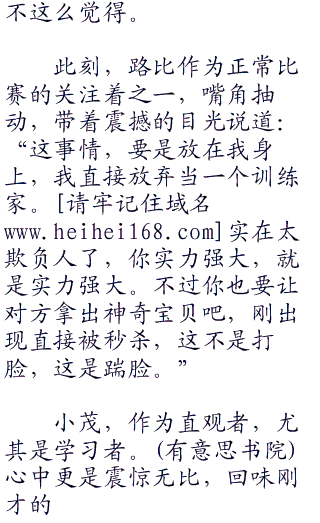 不这么觉得。
此刻，路比作为正常比
赛的关注着之一，嘴角抽
动，带着震撼的目光说道：
“这事情，要是放在我身
上，我直接放弃当一个训练
家。[请牢记住域名
www.heihei168.com]实在太
欺负人了，你实力强大，就
是实力强大。不过你也要让
对方拿出神奇宝贝吧，刚出
现直接被秒杀，这不是打
脸，这是踹脸。”
小茂，作为直观者，尤
其是学习者。(有意思书院)
心中更是震惊无比，回味刚
才的